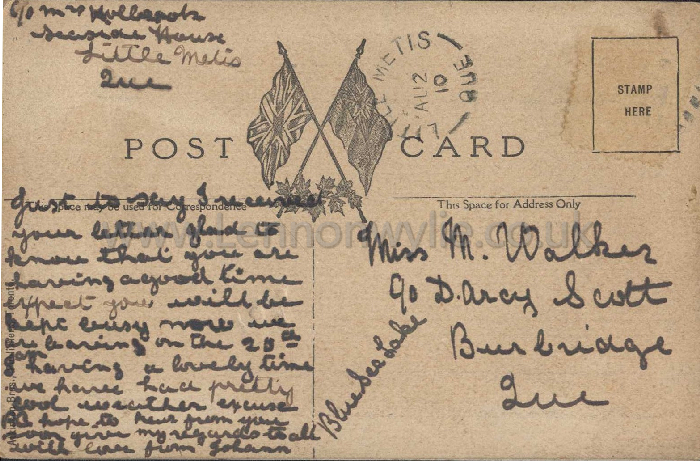 c/o Mrs Holbrook
Seaside House
Little Metis
Que
LITTLE METIS
AU 12
10
QUE
STAMP
HERE
POST CARD
This Space may be used for Correspondence
This Space for Address Only
Just to say I received
your letter glad to
know that you are
having a good time
expect you will be
kept busy now we
are leaving on the 20th
having a lovely time
we have had pretty
cool weather excuse
hope to hear from you
soon give my regards to all
with love from
Miss M. Walker
c/o D.Arcy Scott
Burbridge
Que
Blue Sea Lake
www.Lennonwylie.co.uk